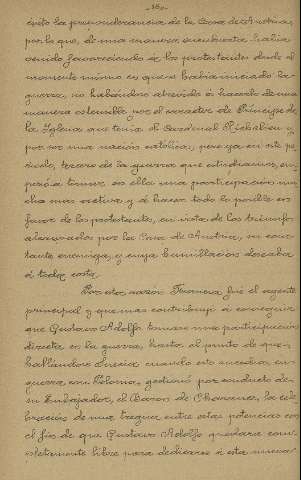 -35-
esto la preponderancia de la Casa de Austria,
por lo que, de una manera encubierta había
venido favoreciendo á los protestantes desde el
momento mismo en que se había iniciado la
guerra, no habiéndose atrevido á hacerlo de una
manera ostensible por el carácter de Príncipe de
la Iglesia que tenía el Cardenal Richelieu y
por ser una nación católica; pero ya en este pe-
ríodo, tercero de la guerra que estudiamos, em-
pezaba tomar en ella una participación mu-
cho mas activa y á hacer todo lo posible en
favor de los protestantes, en vista de los triunfos
alcanzados por la Casa de Austria, su cons-
tante enemiga, y cuya humillación deseaba
á toda costa.
Por esta razón Francia fué el agente
principal y que mas contribuyó á conseguir
que Gustavo Adolfo tomase una participación
directa en la guerra, hasta el punto de que
hallándose Suecia cuando esto sucedía en
guerra con Polonia, gestionó por conducto de
su Embajador, el Baron de Charnace, la cele-
bración de una tregua entre estas potencias con
el fin de que Gustavo Adolfo quedara com-
pletamente libre para dedicarse á esta nueva